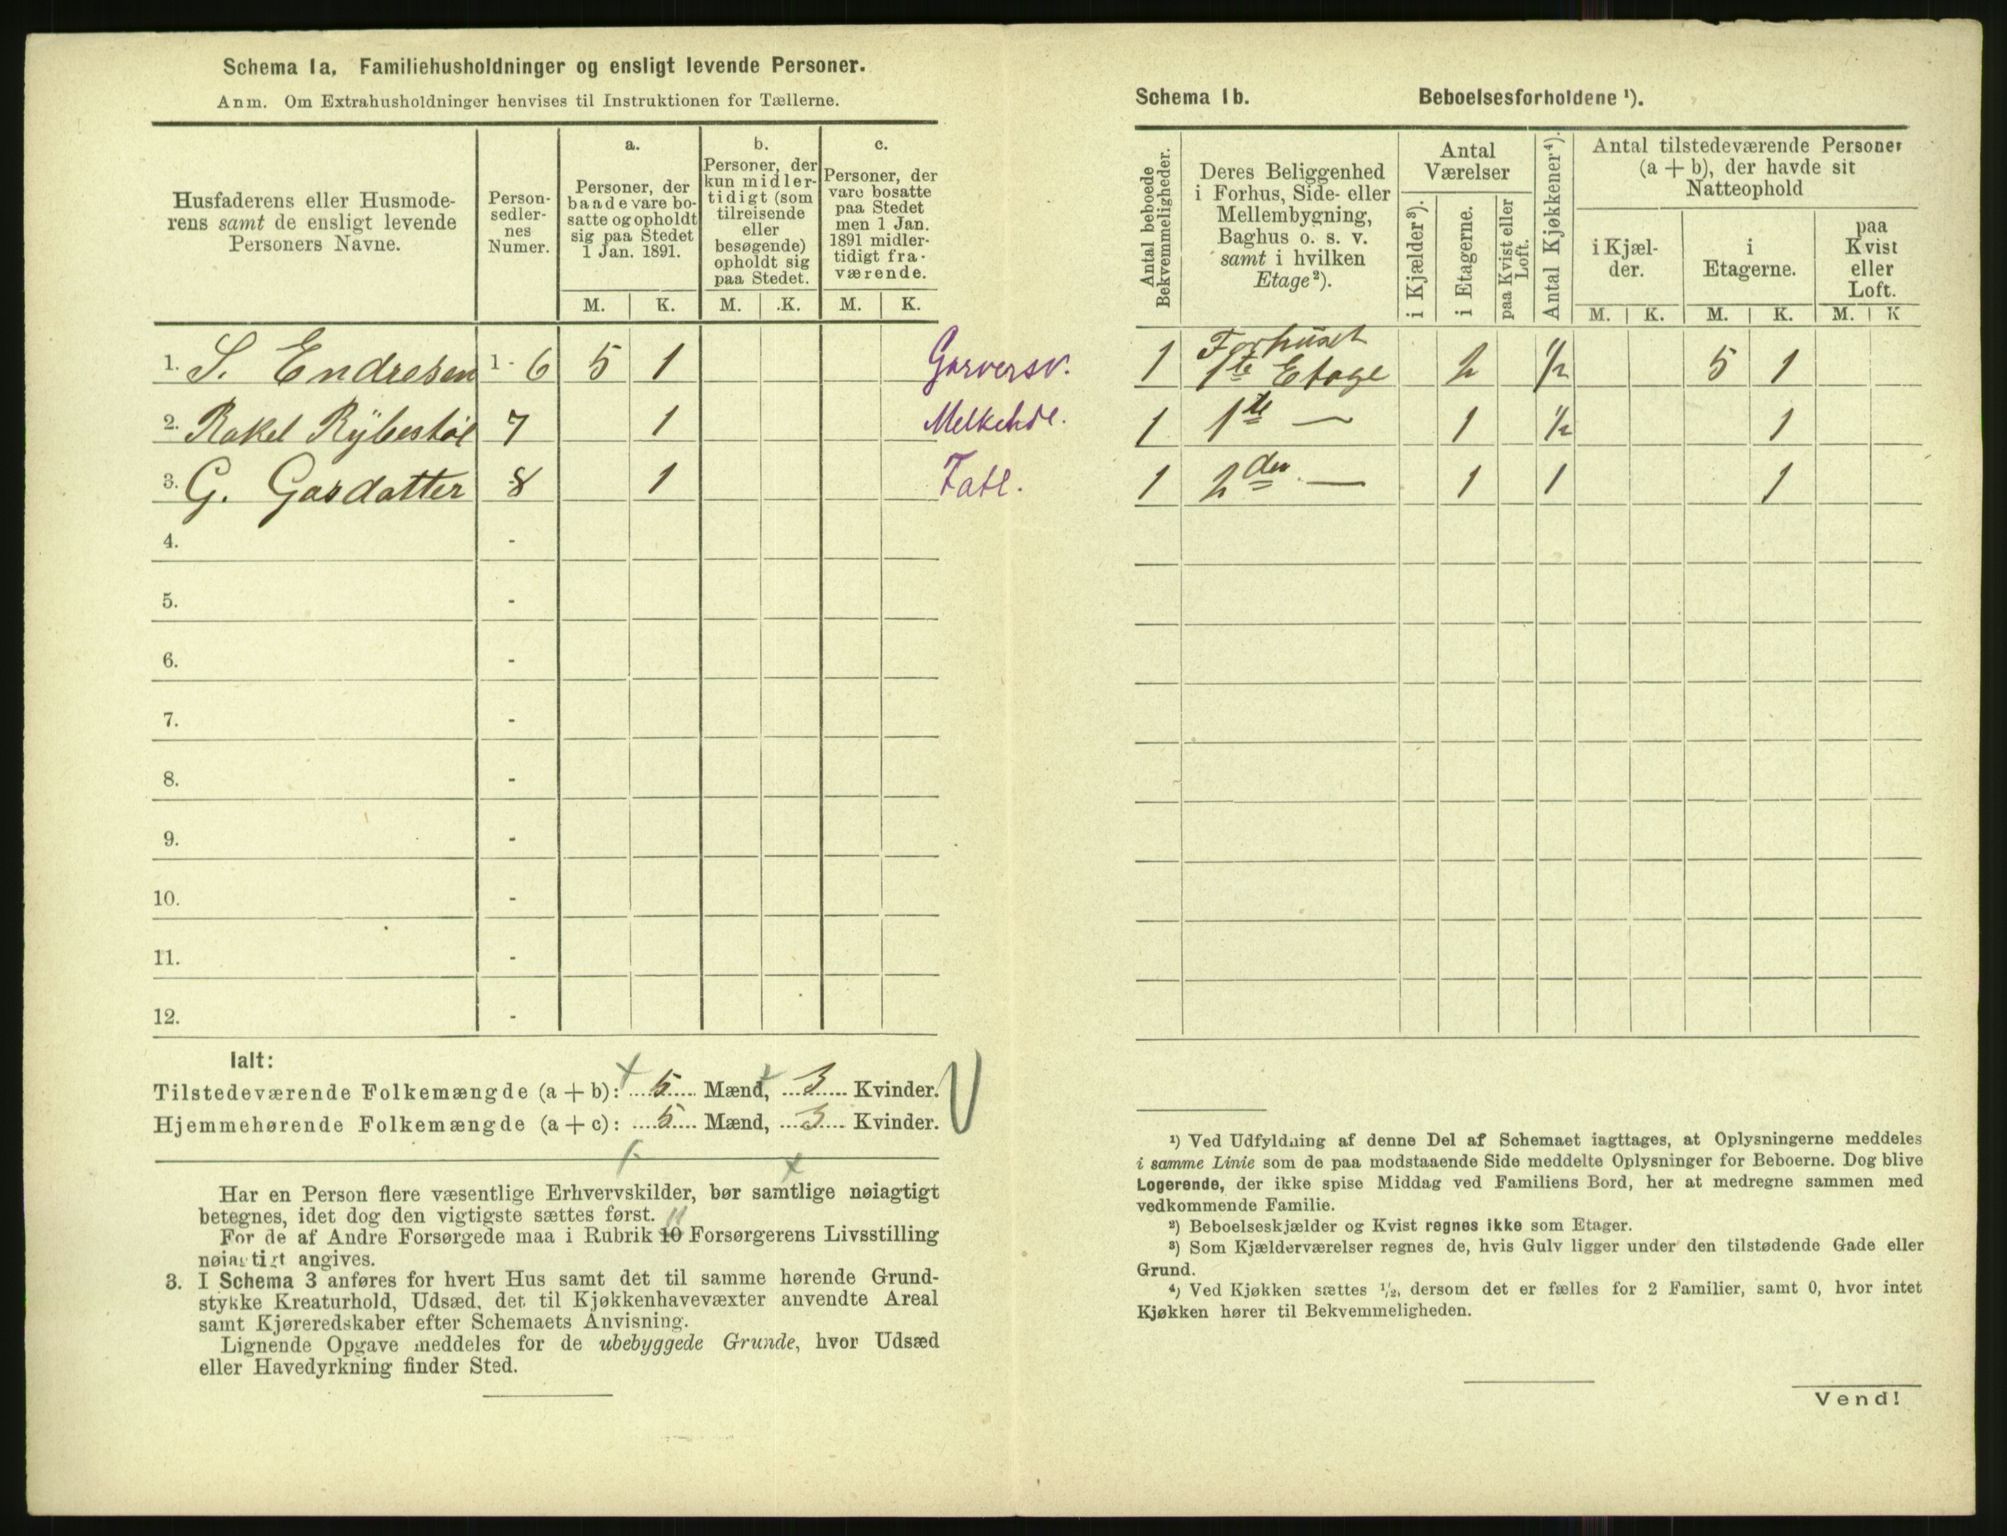 Schema 1a. Familiehusholdninger og ensligt levende Personer.
Anm. Om Extrahusholdninger henvises til Instruktionen for Tællerne.
Husfaderens eller Husmode-
rens samt de ensligt levende
Personers Navne.
Person-
sedler-
nes
Numer.
a.
Personer, der
baade vare bo-
satte og opholdt
sig paa Stedet
1 Jan. 1891.
b.
Personer, der
kun midler-
tidigt (som
tilreisende
eller
besøgende)
opholdt sig
paa Stedet.
c.
Personer, der
vare bosatte
paa Stedet
men 1 Jan.
1891 midler-
tidigt fra-
værende.
M. K. M. K. M. K.
1. S. Endresen 1 - 6 5 1 Garversv.
2. Rakel Rybestøl 7 1
3. G. Gasdatter 8 1
4. -
5. -
6. -
7. -
8. -
9. -
10. -
11. -
12. -
Ialt:
Tilstedeværende Folkemængde (a + b): 5 Mænd, 3 Kvinder.
Hjemmehørende Folkemængde (a + c): 5 Mænd, 3 Kvinder.
Har en Person flere væsentlige Erhvervskilder, bør samtlige nøiagtigt
betegnes, idet dog den vigtigste sættes først.
11
For de af Andre Forsørgede maa i Rubrik 10 Forsørgerens Livsstilling
nøiagtigt angives.
3. I Schema 3 anføres for hvert Hus samt det til samme hørende Grund-
stykke Kreaturhold, Udsæd, det til Kjøkkenhavevæxter anvendte Areal
samt Kjøreredskaber efter Schemaets Anvisning.
Lignende Opgave meddeles for de ubebyggede Grunde, hvor Udsæd
eller Havedyrkning finder Sted.
Schema 1b. Beboelsesforholdene ¹).
Antal beboede
Bekvemmeligheder.
Deres Beliggenhed
i Forhus, Side- eller
Mellembygning,
Baghus o. s. v.
samt i hvilken
Etage²).
Antal
Værelser
i Kjælder³).
i Etagerne.
paa Kvist eller
Loft.
Antal Kjøkkener⁴).
Antal tilstedeværende Personer
(a + b), der havde sit
Natteophold
i Kjæl-
der.
i
Etagerne.
paa
Kvist
eller
Loft.
M. K. M. K. M. K
1 Forhuset
1te Etage 2 1/2 5 1
1 1te — 1 1/2 1
1 2den — 1 1 1
¹) Ved Udfyldning af denne Del af Schemaet iagttages, at Oplysningerne meddeles
i samme Linie som de paa modstaaende Side meddelte Oplysninger for Beboerne. Dog blive
Logerende, der ikke spise Middag ved Familiens Bord, her at medregne sammen med
vedkommende Familie.
²) Beboelseskjælder og Kvist regnes ikke som Etager.
³) Som Kjælderværelser regnes de, hvis Gulv ligger under den tilstødende Gade eller
Grund.
⁴) Ved Kjøkken sættes ¹/₂, dersom det er fælles for 2 Familier, samt 0, hvor intet
Kjøkken hører til Bekvemmeligheden.
Vend!